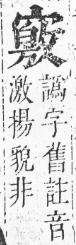 譌字舊註音
激揚貌非